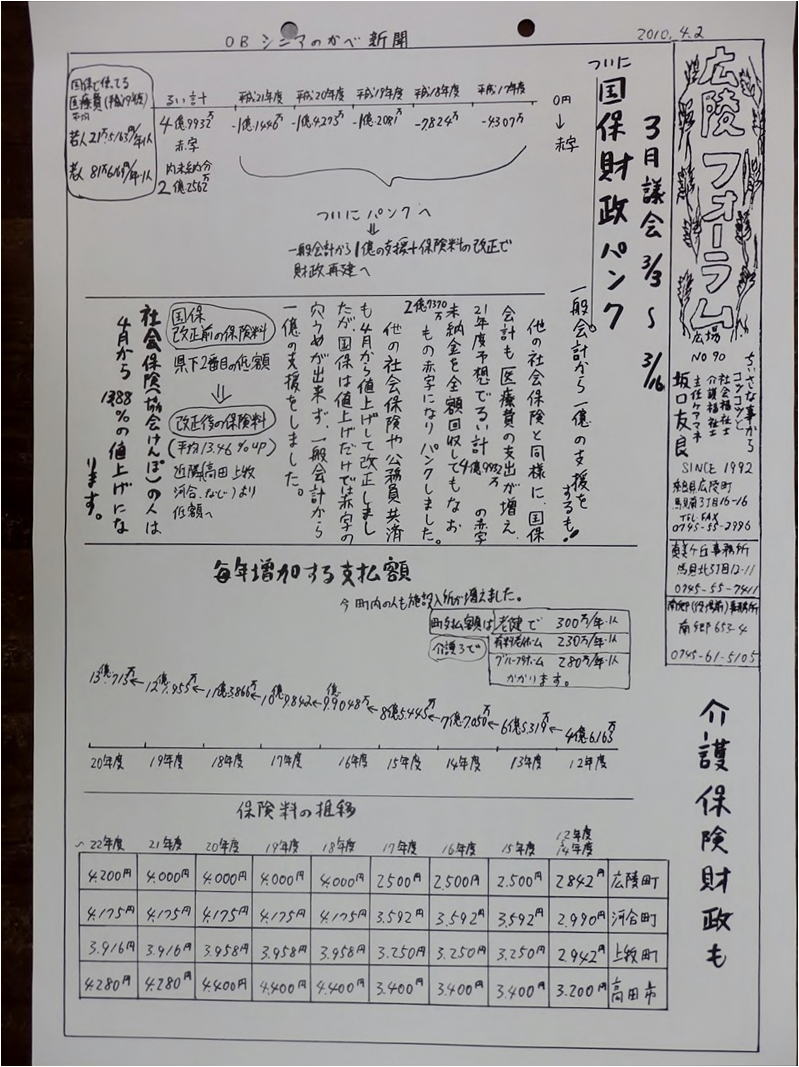 OB シニアのかべ新聞
2010.4.2
広陵フォーラム
広場
NO 90
ちいさな事から
コツコツと
社会福祉士
介護福祉士
主任ケアマネ
坂口友良
SINCE 1992
奈良県広陵町
馬見南3丁目16-16
TEL.FAX
0745-55-2996
真美ヶ丘事務所
馬見北5丁目12-11
0745-55-7411
南郷(役場前)事務所
南郷653-4
0745-61-5105
3月議会 3/3 ～ 3/16
ついに
国保財政パンク
一般会計から一億の支援を
するも!
0円
↓
赤字
平成17年度
-4307万
平成18年度
-7824万
平成19年度
-1億.2081万
平成20年度
-1億.4275万
平成21年度
-1億.1446万
るい計
4億.9932万
赤字
内未納分
2億.2562万
国保で使ってる
医療費(平成19年度)
平均
若人 21万5163円/年・1人
老人 81万6169円/年・1人
ついにパンクへ
⇓
一般会計から1億の支援+保険料の改正で
財政再建へ
他の社会保険と同様に、国保
会計も医療費の支出が増え、
21年度予想でるい計4億9932万の赤字
未納金を全額回収してもなお
2億7370万もの赤字になりパンクしました。
他の社会保険や公務員共済
も4月から値上げして改正しまし
たが、国保は値上げだけでは赤字の
穴うめが出来ず、一般会計から
一億の支援をしました。
国保
改正前の保険料
県下2番目の低額
⇓
改正後の保険料
(平均13.46%up)
近隣(高田 上牧
河合、など)より
低額へ
社会保険(協会けんぽ)の人は
4月から13.88%の値上げにな
ります。
毎年増加する支払額
今町内の人も施設入所が増えました。
町支払額は
介護3で
老健で 300万/年・1人
有料老ホーム 230万/年・1人
グループホーム 280万/年・1人
かかります。
13億.713万←12億.955万←11億.3866万←10億.9842万←9億.9048万←8億5.445万←7億7.050万←6億5.319万←4億.6.165万
20年度 19年度 18年度 17年度 16年度 15年度 14年度 13年度 12年度
介護保険財政も
保険料の推移
～22年度 21年度 20年度 19年度 18年度 17年度 16年度 15年度 12年度 14年度
4.200円 4.000円 4.000円 4.000円 4.000円 2.500円 2,500円 2.500円 2.842円 広陵町
4.175円 4.175円 4.175円 4.175円 4.175円 3.592円 3.592円 3.592円 2.990円 河合町
3.916円 3.916円 3.958円 3.958円 3.958円 3.250円 3.250円 3.250円 2.942円 上牧町
4.280円 4.280円 4.400円 4.400円 4.400円 3.400円 3.400円 3.400円 3.200円 高田市